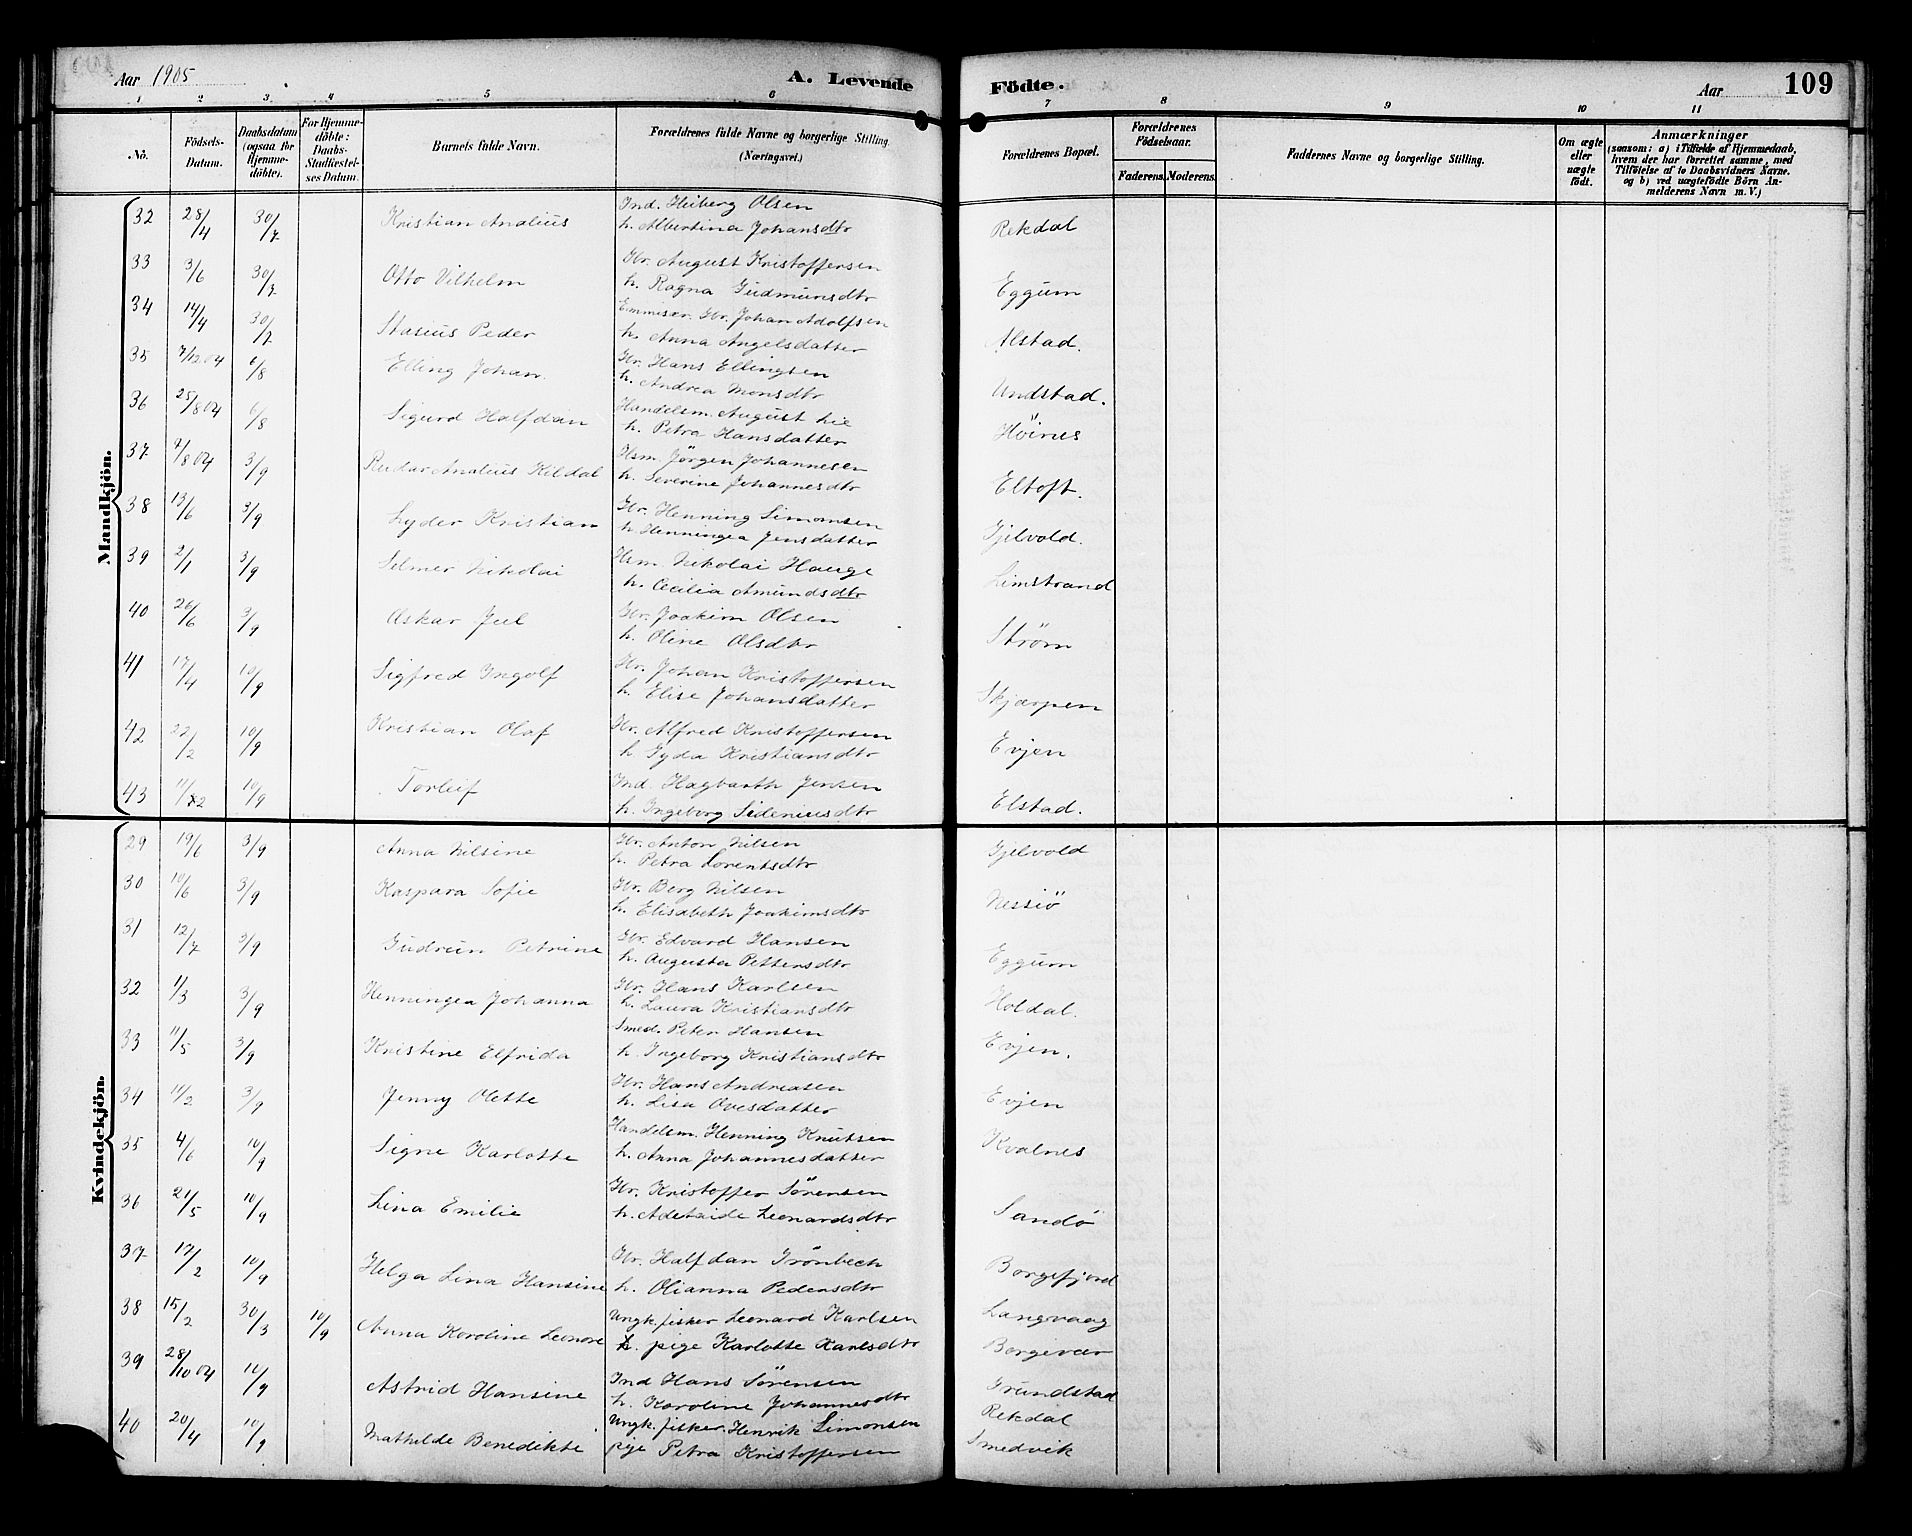 Aar 1905 A. Levende Födte. Aar 109
1 2 3 4 5 6 7 8 9 10 11
No. Födsels-Datum. Daabsdatum (ogsaa for Hjemmedöbte). For Hjemmedöbte: Daabs-Stadfæstelses Datum. Barnets fulde Navn. Forældrenes fulde Navne og borgerlige Stilling. (Næringsvei.) Forældrenes Bopæl. Forældrenes Födselsaar. Faderens. Moderens. Faddernes Navne og borgerlige Stilling. Om ægte eller uægte födt. Anmærkninger (saasom: a) i Tilfælde af Hjemmedaab, hvem der har forrettet samme, med Tilföielse af to Daabsvidners Navne. og b) ved uægtefödte Börn Anmelderens Navn m. V.)
Mandkjön.
32 28/4 30/7 Kristian Analius Ind. Heiberg Olsen
h. Albertina Johansdtr Rekdal
33 3/6 30/7 Otto Vilhelm Gbr. August Kristoffersen
h. Ragna Gudmunsdtr Eggum
34 14/4 30/7 Stasius Peder Emmisær Gbr. Johan Adolfsen
h. Anna Angelsdatter Alstad.
35 7/12 04 6/8 Elling Johan. Gbr. Hans Ellingsen
h. Andrea Monsdtr Undstad.
36 25/8 04 6/8 Sigurd Halfdan Handelsm. August Lie
h. Petra Hansdatter Höines
37 9/8 04 3/9 Rudar Analius Kildal Hsm. Jörgen Johannesen
h. Severine Johannesdtr Eltoft.
38 13/6 3/9 Lyder Kristian Gbr. Henning Simonsen
h. Henningea Jensdatter Gjelvold.
39 2/1 3/9 Selmer Nikolai Hsm. Nikolai Hauge
h. Cecilia Amundsdtr Limstrand
40 26/6 3/9 Oskar Juel Gbr. Joakim Olsen
h. Oline Olsdtr Ström
41 17/4 10/9 Sigfred Ingolf Gbr. Johan Kristoffersen
h. Elise Johansdatter Skjærpen
42 22/2 10/9 Kristian Olaf Gbr. Alfred Kristoffersen
h. Gyda Kristiansdtr Evjen
43 11/2 10/9 Torleif Ind. Hagbarth Jensen
h. Ingeborg Sideniusdtr Elstad.
Kvindekjön.
29 19/6 3/9 Anna Nilsine Gbr. Anton Nilsen
h. Petra Lorentsdtr Gjelvold
30 10/6 3/9 Kaspara Sofie Gbr. Berg Nilsen
h. Elisabeth Joakimsdtr Nessiö
31 12/7 3/9 Gudrun Petrine Gbr. Edvard Hansen
h. Augusta Pettersdtr Eggum
32 1/3 3/9 Henningea Johanna Gbr. Hans Karlsen
h. Laura Kristiansdtr Holdal.
33 11/5 3/9 Kristine Elfrida Smed. Peter Hansen
h. Ingeborg Kristiansdtr Evjen.
34 11/2 3/9 Jenny Olette Gbr. Hans Andreasen
h. Lisa Ovesdatter Evjen
35 4/6 10/9 Signe Karlotte Handelsm. Henning Knutsen
h. Anna Johannesdatter Kvalnes
36 21/5 10/9 Lina Emilie Gbr. Kristoffer Sörensen
h. Adelaide Leonardsdtr Sandö
37 17/2 10/9 Helga Lina Hansine Gbr. Halfdan Trönbech
h. Olianna Pedersdtr Borgefjord
38 15/2 30/3 10/9 Anna Karoline Leonore Ungk. fisker Leonard Karlsen Langvaag
pige Karlotte Karlsdtr Borgevær
39 28/10 04 11/9 Astrid Hansine Ind Hans Sörensen
h. Karoline Johannesdtr Grundstad
40 20/4 10/9 Mathilde Benedikte Ungk. fisker. Henrik Simonsen Rekdal
pige Petra Kristoffersen Smedvik